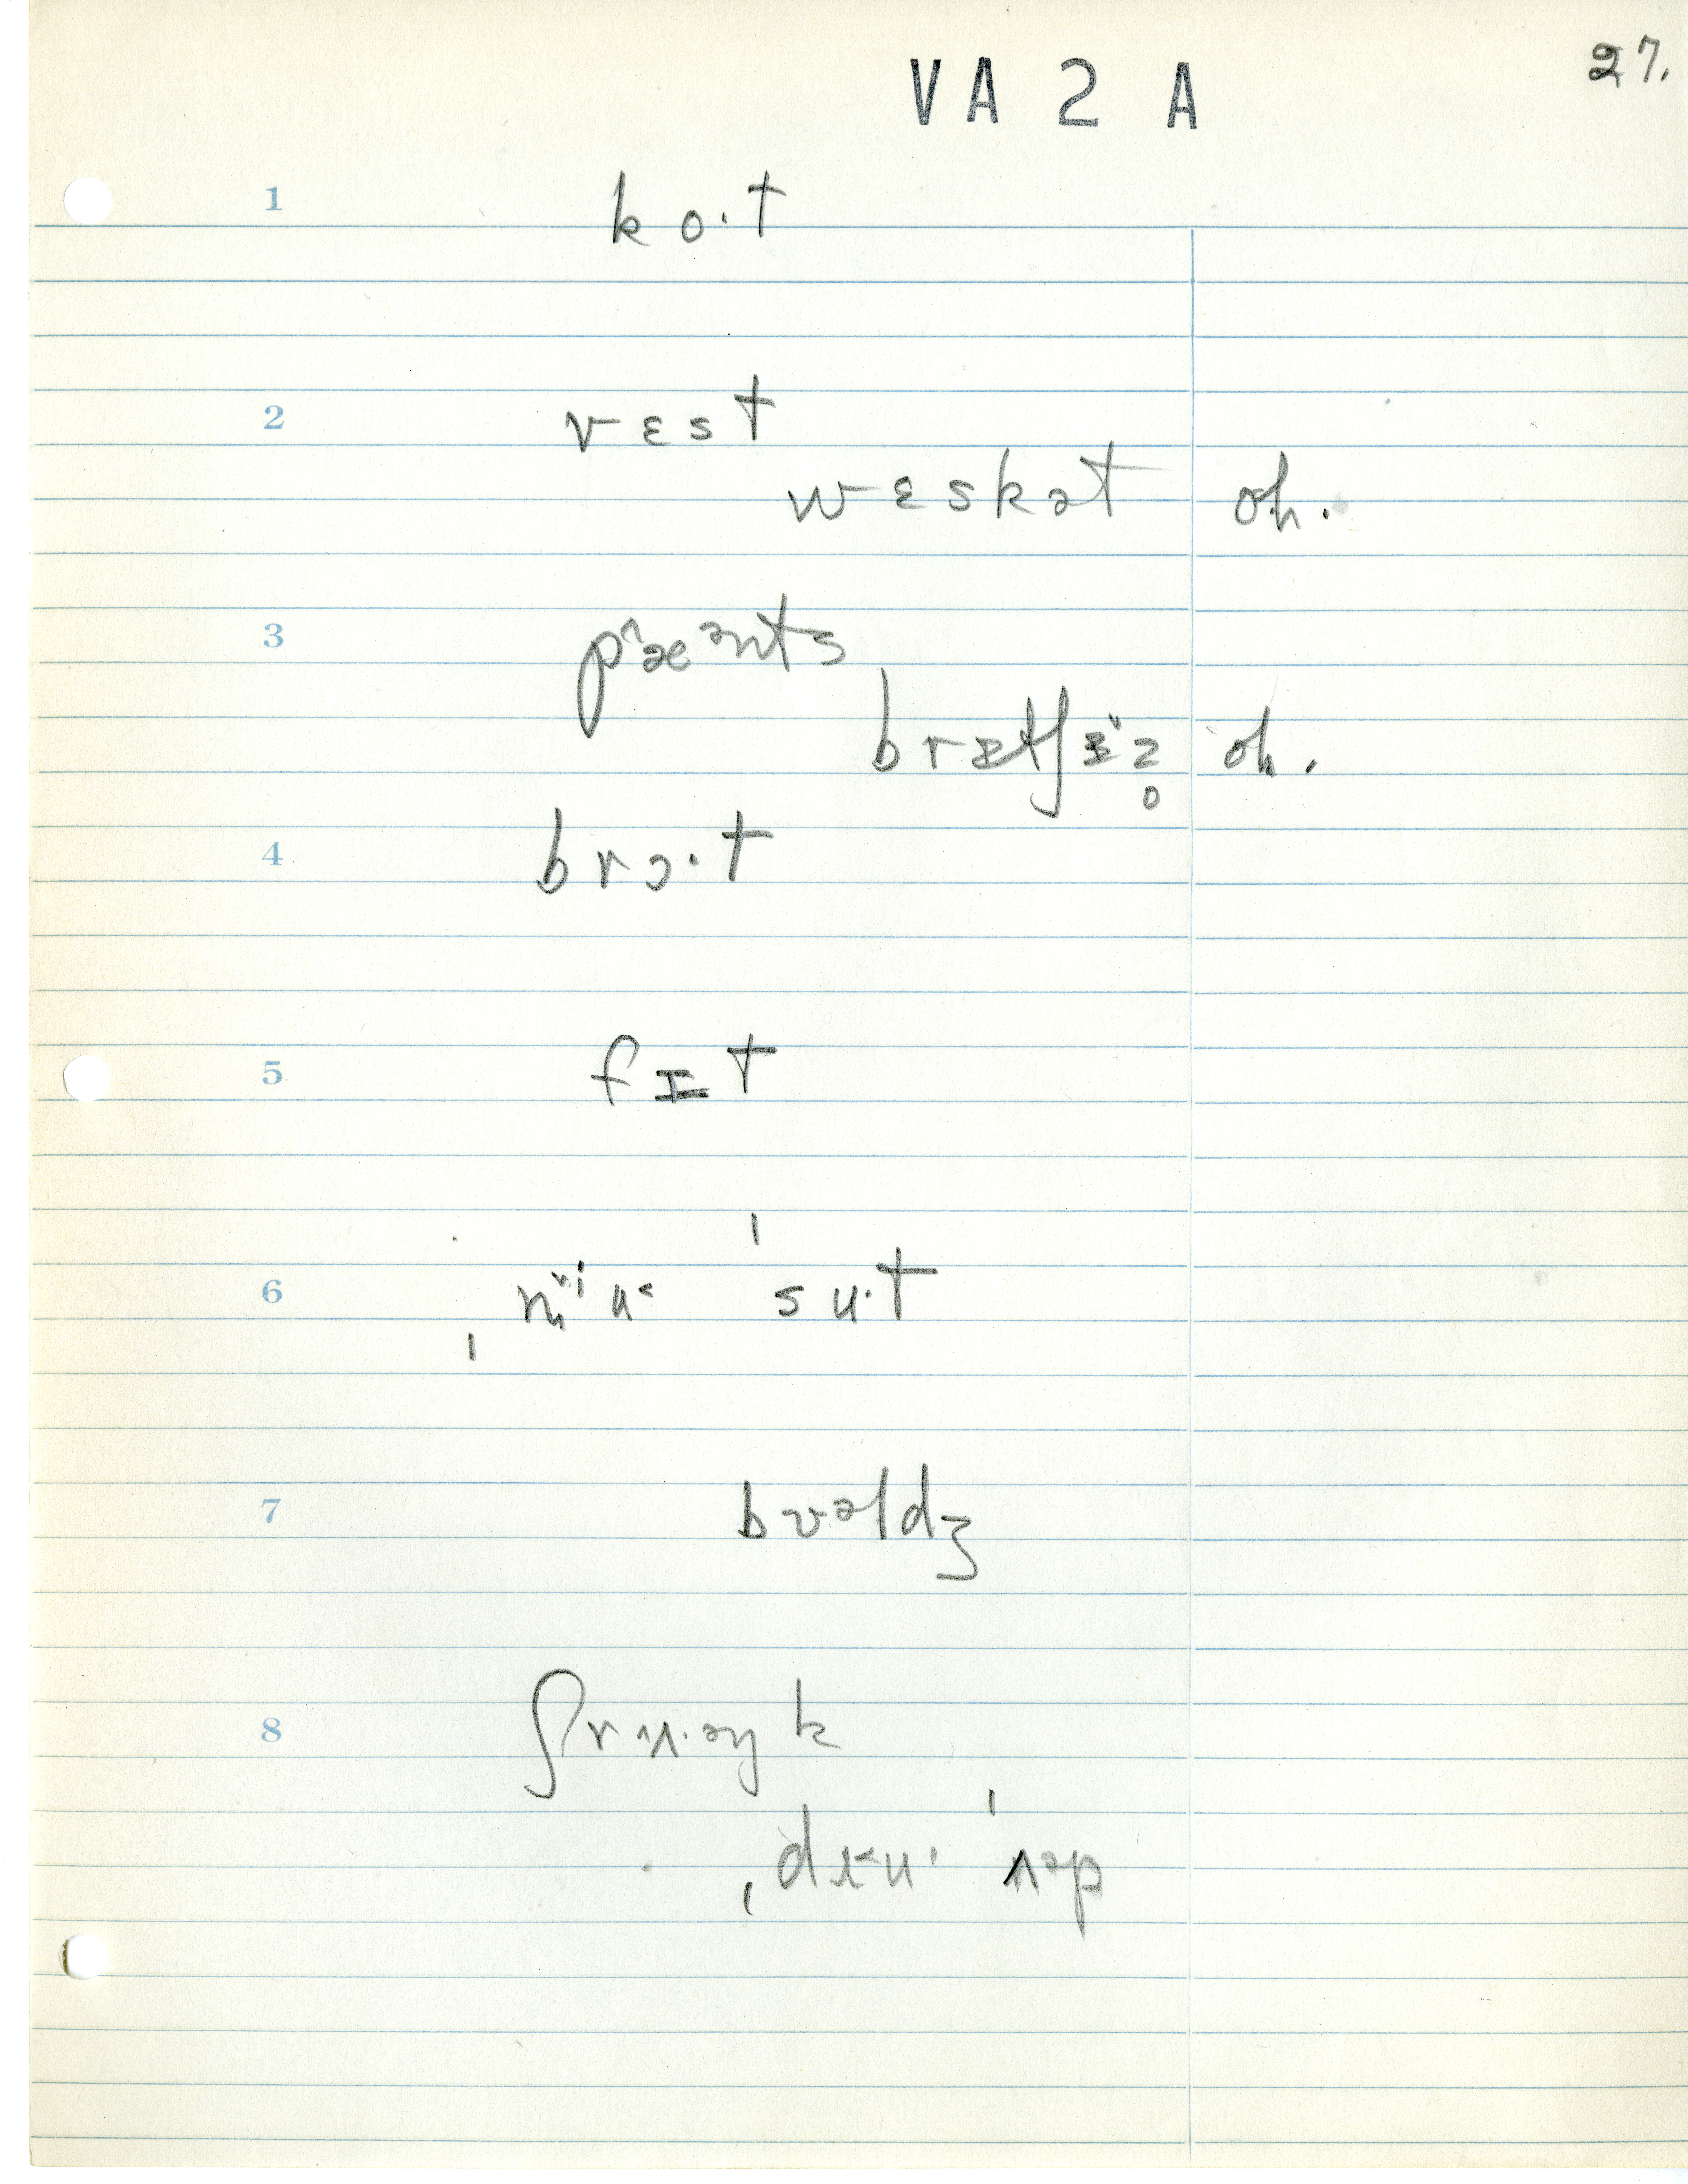 VA 2 A
27.
1 ko·t
2 vɛst
wɛskət oh.
3 pæənts
brɪtʃɪz̥ oh.
4 brɔ·t
5 fɪt
6 ˈsu·t
7 bʊəldʒ
8 ʃrʌ·əŋk